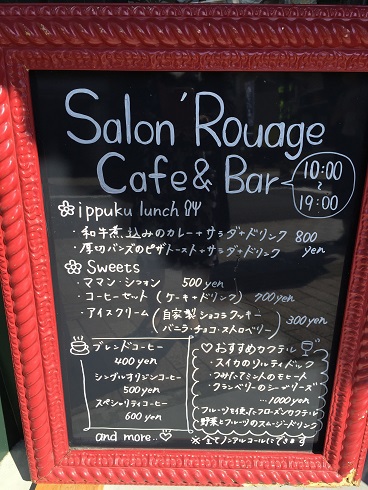 Salon' Rouage
Cafe & Bar
10:00
~
19:00
ippuku lunch
・和牛煮込みのカレー+サラダ+ドリンク 800
・厚切バンズのピザトースト+サラダ+ドリンク yen
Sweets
・ママン・シフォン 500yen
・コーヒーセット(ケーキ+ドリンク) 700yen
・アイスクリーム(自家製ショコラクッキー
バニラ・チョコ・ストロベリー) 300yen
ブレンドコーヒー
400yen
シングルオリジンコーヒー
500yen
スペシャリティコーヒー
600yen
and more..
♡おすすめカクテル
・スイカのソルティドッグ
・つみたてミントのモヒート
・クランベリーのシーブリーズ
...1000yen
フルーツを使ったフローズンカクテル
野菜とフルーツのスムージードリンク
※全てノンアルコールにできます